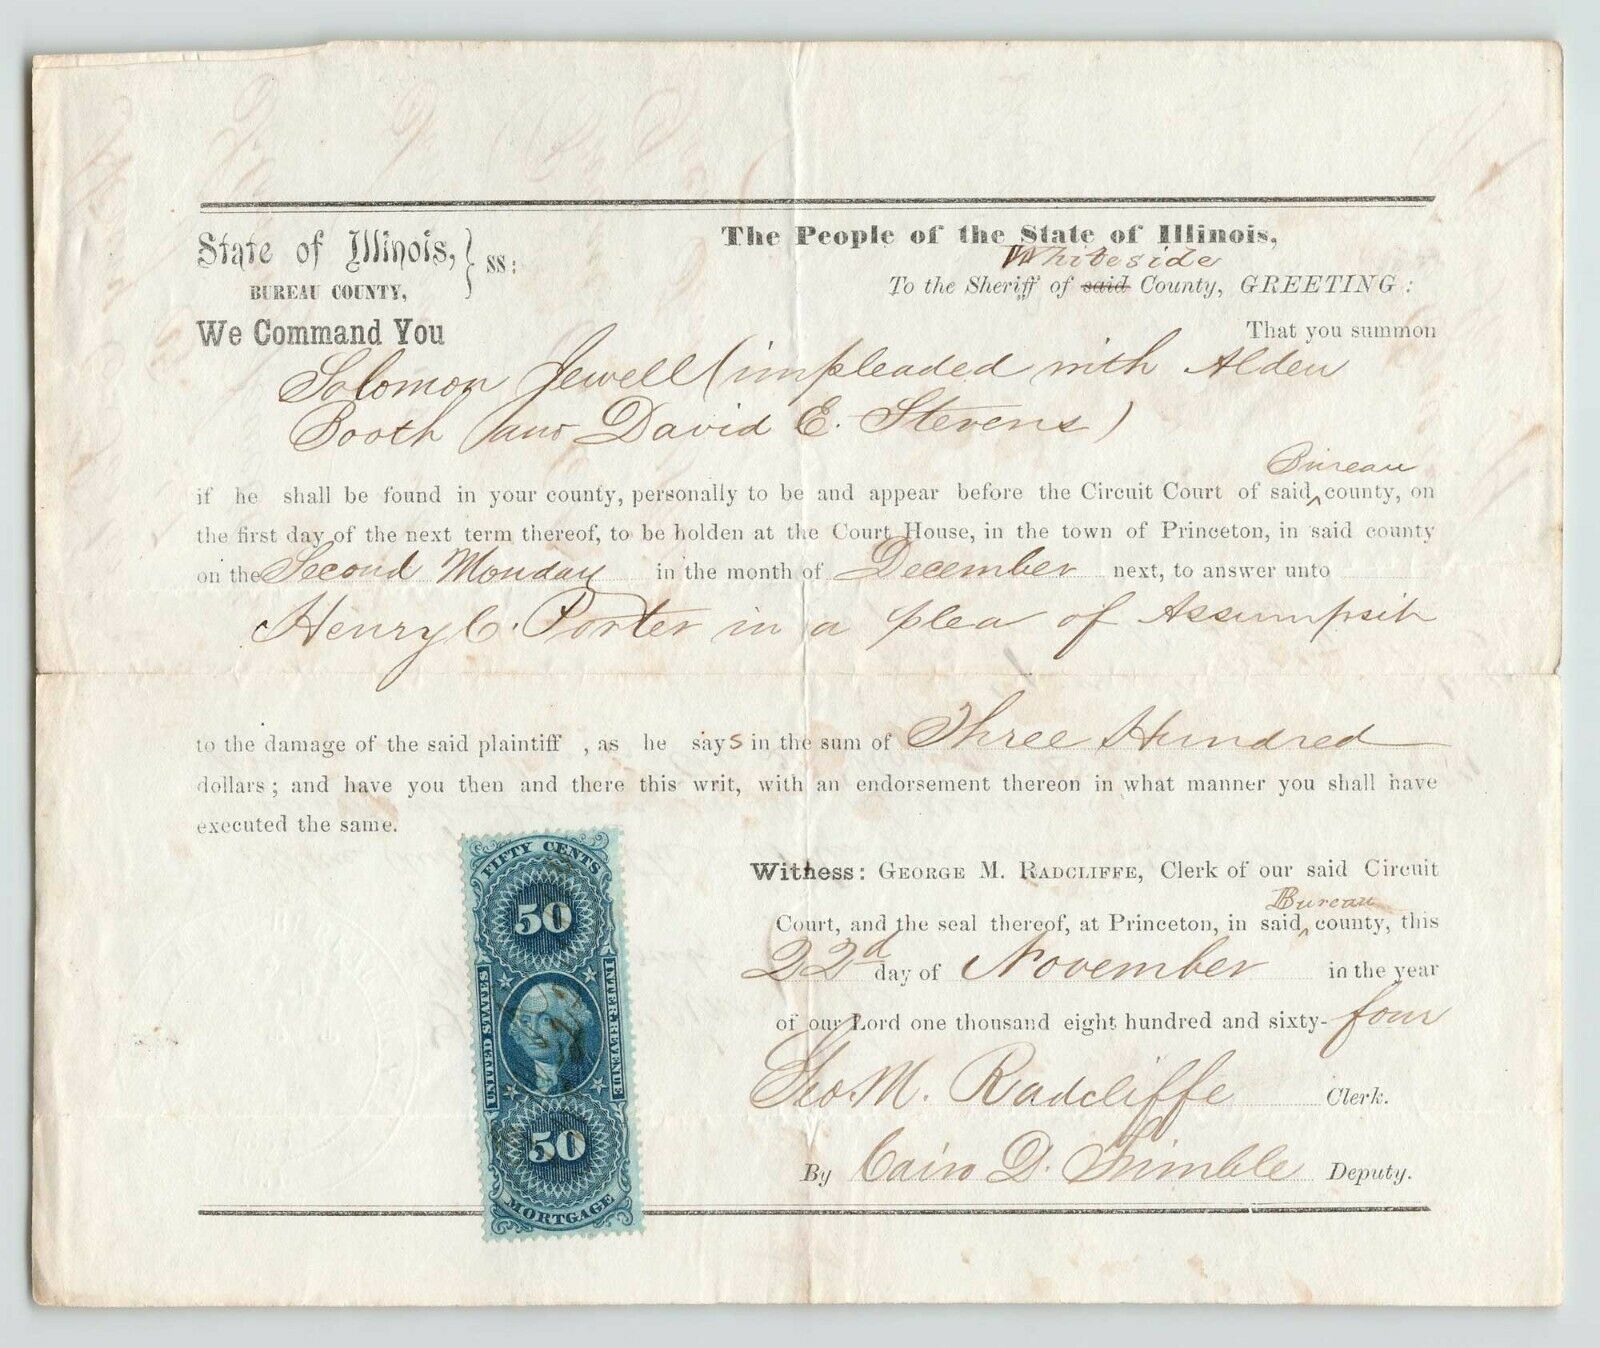 The People of the State of Illinois,
State of Illinois, } ss:
BUREAU COUNTY,
Whiteside
To the Sheriff of said County, GREETING:
We Command You That you summon
Solomon Jewell (impleaded with Alden
Booth and David E. Stevens)
Bureau
if he shall be found in your county, personally to be and appear before the Circuit Court of said ‸ county, on
the first day of the next term thereof, to be holden at the Court House, in the town of Princeton, in said county
on the Second Monday in the month of December next, to answer unto
Henry C. Porter in a plea of Assumpsit
to the damage of the said plaintiff , as he says in the sum of Three Hundred
dollars; and have you then and there this writ, with an endorsement thereon in what manner you shall have
executed the same.
Witness: GEORGE M. RADCLIFFE, Clerk of our said Circuit
Bureau
Court, and the seal thereof, at Princeton, in said ‸ county, this
22d day of November in the year
of our Lord one thousand eight hundred and sixty-four
Geo. M. Radcliffe Clerk.
By Cairo D. Trimble Deputy.
FIFTY CENTS
50
UNITED STATES
INTER. REVENUE
50
MORTGAGE